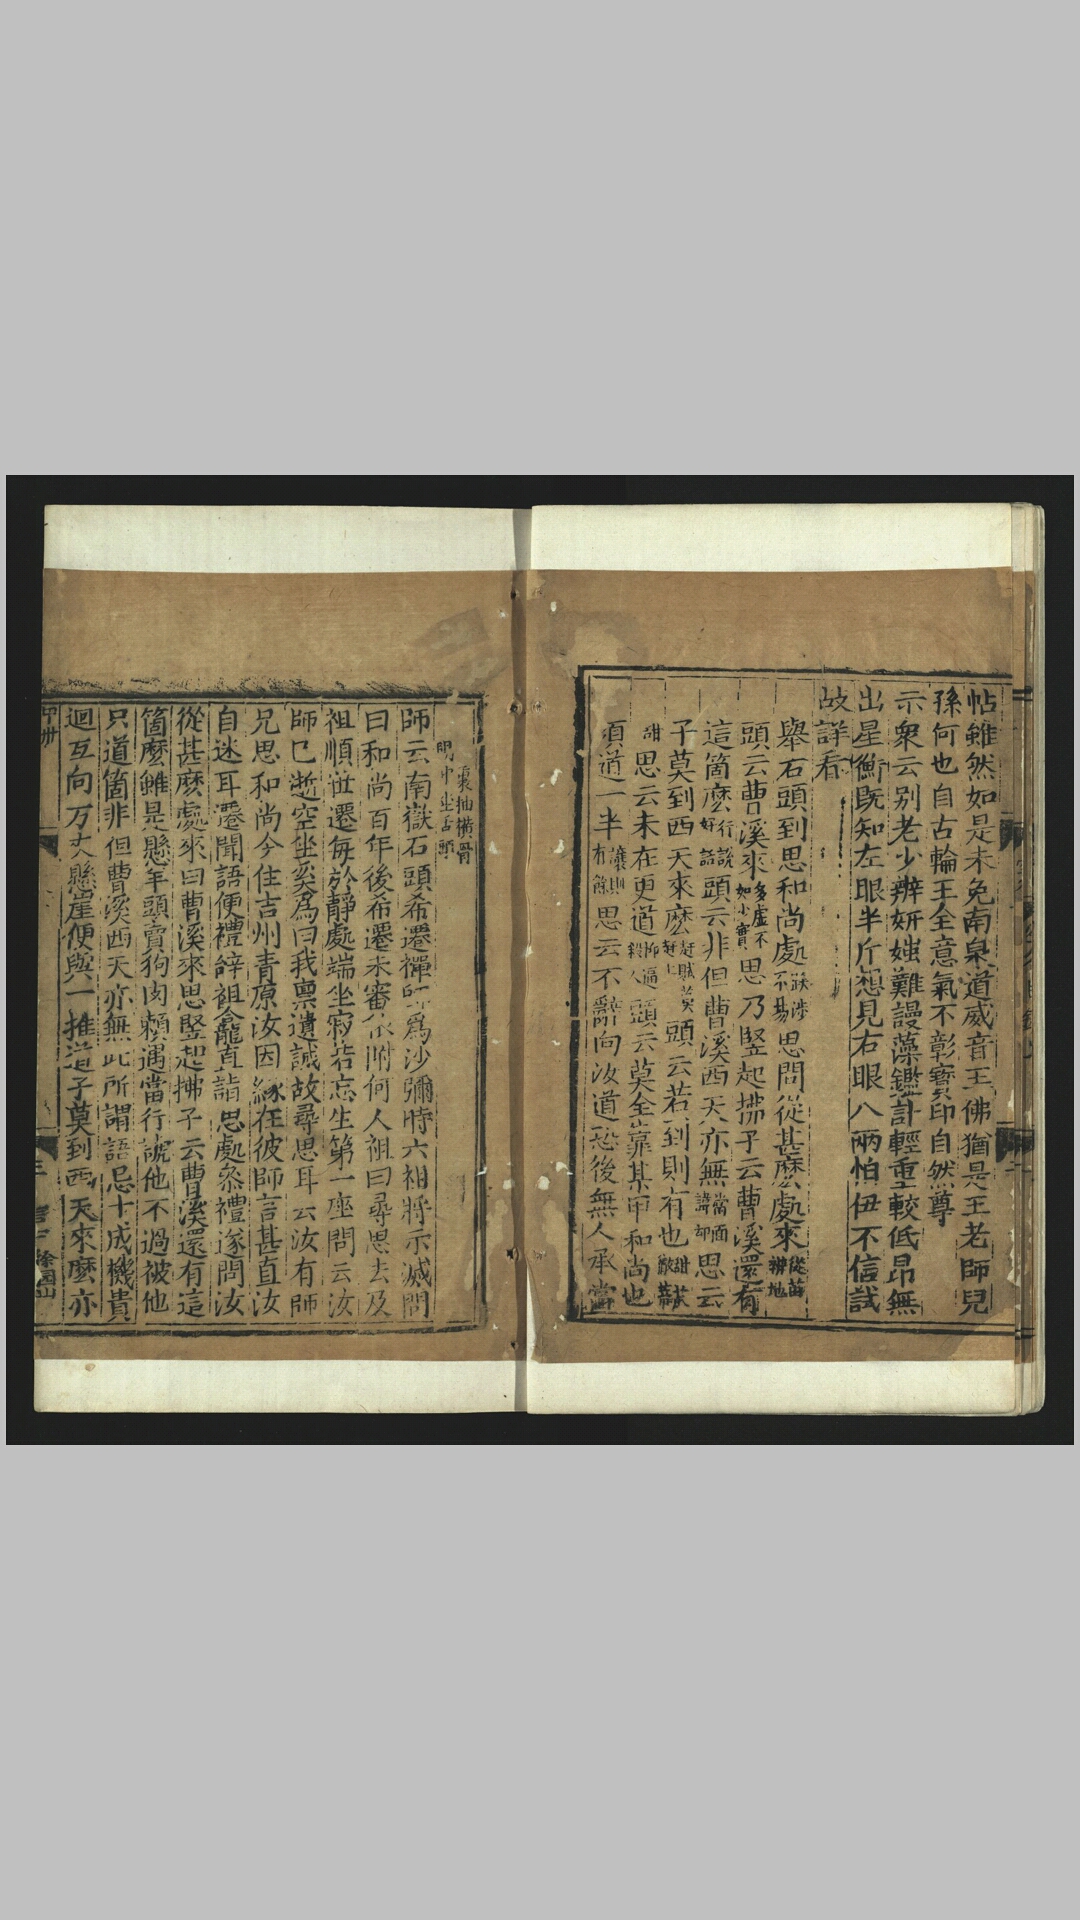 帖雖然如是未免南泉道威音王佛猶是王老師兒
孫何也自古輪王全意氣不彰寶印自然尊
示衆云别老少辨妍媸難謾藻鑑計輕重較低昂無
出星衡旣知左眼半斤想見右眼八兩怕伊不信試
故詳看
舉石頭到思和尚處跋涉不易思問從甚麽處來從苗辨地
頭云曹溪來多虛不如少實思乃竪起拂子云曹溪還有
這箇麽行說好話頭云非但曹溪西天亦無當面諱却思云
子莫到西天來麽趂賊頭云若到則有也
思云未在更道拶逼殺人頭云莫全靠某甲和尚也
須道一半讓則有餘思云不辭向汝道恐後無人承當
裏抽橫骨
明中坐舌頭
師云南嶽石頭希遷禪師爲沙彌時六祖將示滅問
曰和尚百年後希遷未審依附何人祖曰尋思去及
祖順世遷每於靜處端坐寂若忘生第一座問云汝
師已逝空坐奚爲曰我禀遺誡故尋思耳云汝有師
兄思和尚今住吉州青原汝因緣在彼師言甚直汝
自迷耳遷聞語便禮辭祖龕直詣思處叅禮遂問汝
從甚麽處來曰曹溪來思竪起拂子云曹溪還有這
箇麽雖是懸羊頭賣狗肉賴遇當行說他不過被他
只道箇非但曹溪西天亦無此所謂語忌十成機貴
迴互向万丈懸崖便與一推道子莫到西天來麽亦